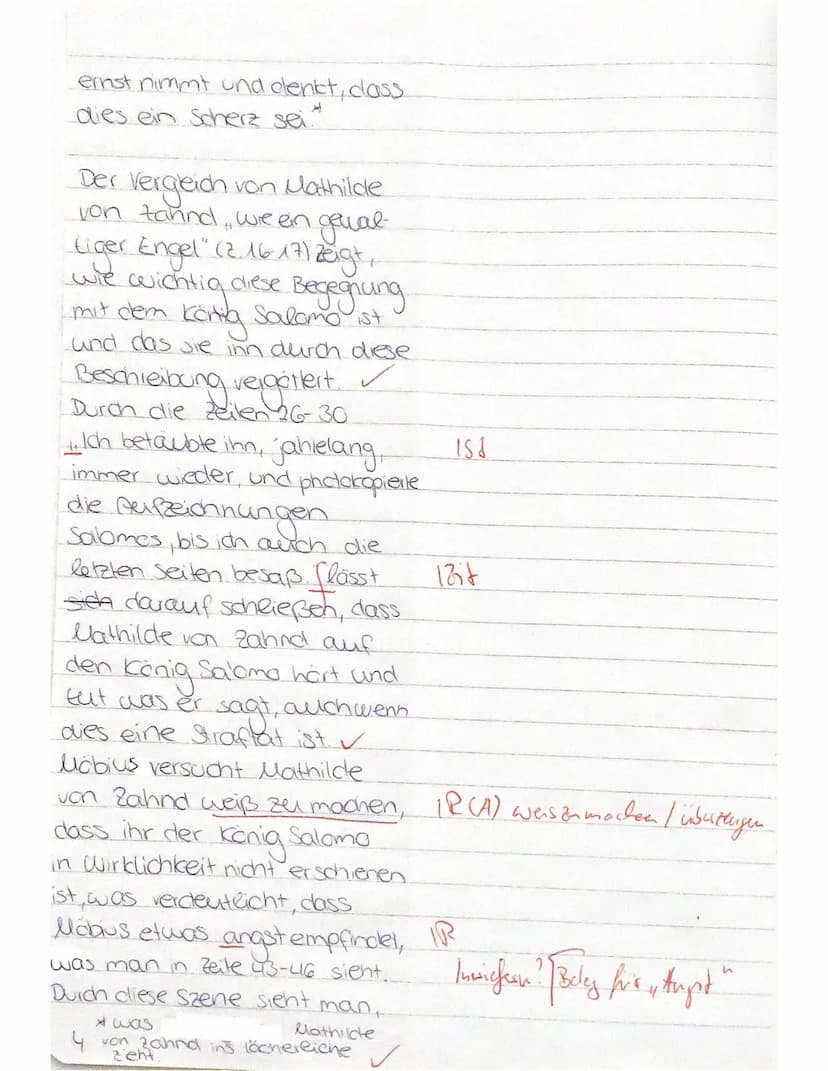 ernst nimmt und denkt, dass
dies ein Scherz sei.*
Der Vergleich von Mathilde
von Zahnd „wie ein gewal-
tiger Engel" (Z.16-17) zeigt,
wie wichtig diese Begegnung
mit dem König Salomo ist
und das sie ihn durch diese
Beschreibung vergöttert. ✓
Durch die Zeilen 26-30
„Ich betäubte ihn, jahrelang,
immer wieder, und photokopierte
die Aufzeichnungen
Salomos, bis ich auch die
letzten Seiten besaß. lässt
1Zit
sich darauf schließen, dass
Mathilde von Zahnd auf
den König Salomo hört und
tut was er sagt, auch wenn
dies eine Straftat ist. ✓
Möbius versucht Mathilde
von Zahnd weiß zu machen,
1R(A) weiszumachen / überzeugen
dass ihr der König Salomo
in Wirklichkeit nicht erschienen
ist, was verdeutlicht, dass
Möbius etwas angst empfindet,
1R
was man in Zeile 43-46 sieht.
Inwiefern? Beleg für „Angst"
Durch diese Szene sieht man,
* was Mathilde
4 von Zahnd ins lächereiche
zieht. ✓